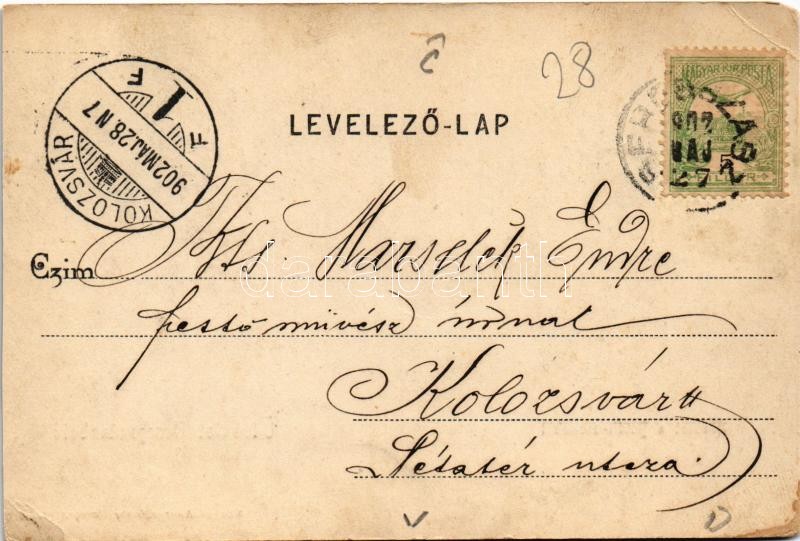 28
LEVELEZŐ-LAP
KOLOZSVÁR
902 MÁJ 28. N 7
F 1 F
MAGYAR KIR. POSTA
902
MAJ
27
Czim Marselek Endre
festő művész úrnak
Kolozsvártt
Sétatér utcza.
darabanth